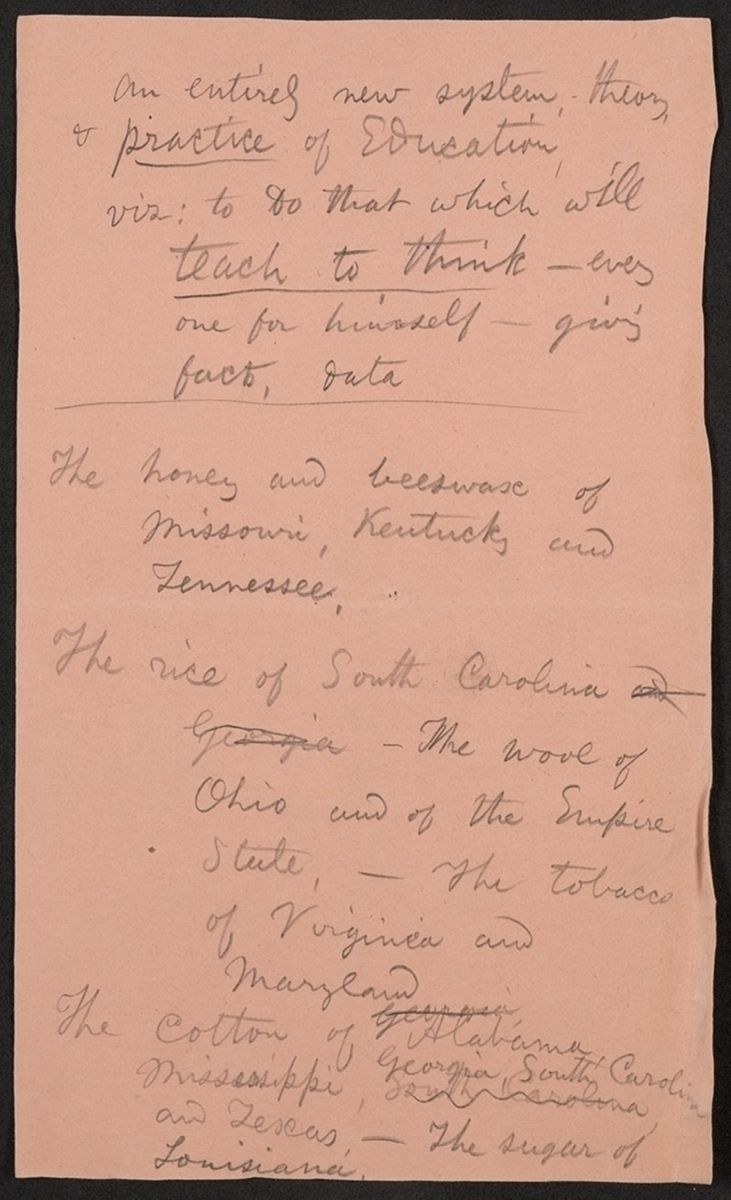 an entirely new system, - theory,
& practice of Education,
viz: to do that which will
teach to think — every
one for himself — givig
facts, data
The honey and beeswax of
Missouri, Kentucky and
Tennessee,
The rice of South Carolina and
Georgia — The wool of
Ohio and of the Empire
State, — The tobacco
of Virginia and
Maryland
Georgia,
The cotton of Alabama,
Georgia, South Carolina
Mississippi, South Carolina,
and Texas, — The sugar of
Louisiana.